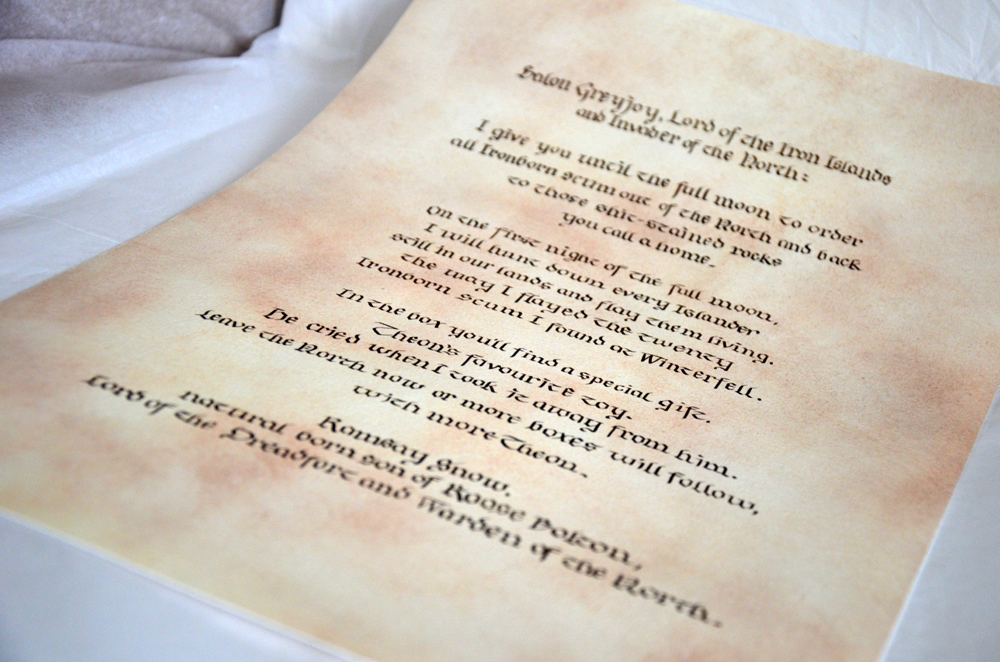 Balon Greyjoy, Lord of the Iron Islands
and Invader of the North:
I give you until the full moon to order
all Ironborn scum out of the North and back
to those shit-stained rocks
you call a home.
On the first night of the full moon,
I will hunt down every Islander
still in our lands and flay them living.
the way I flayed the twenty
Ironborn scum I found at Winterfell.
In the box you'll find a special gift.
Theon's favourite toy.
He cried when I took it away from him.
Leave the North now or more boxes will follow,
with more Theon.
Ramsay Snow,
natural born son of Roose Bolton,
Lord of the Dreadfort and Warden of the North.